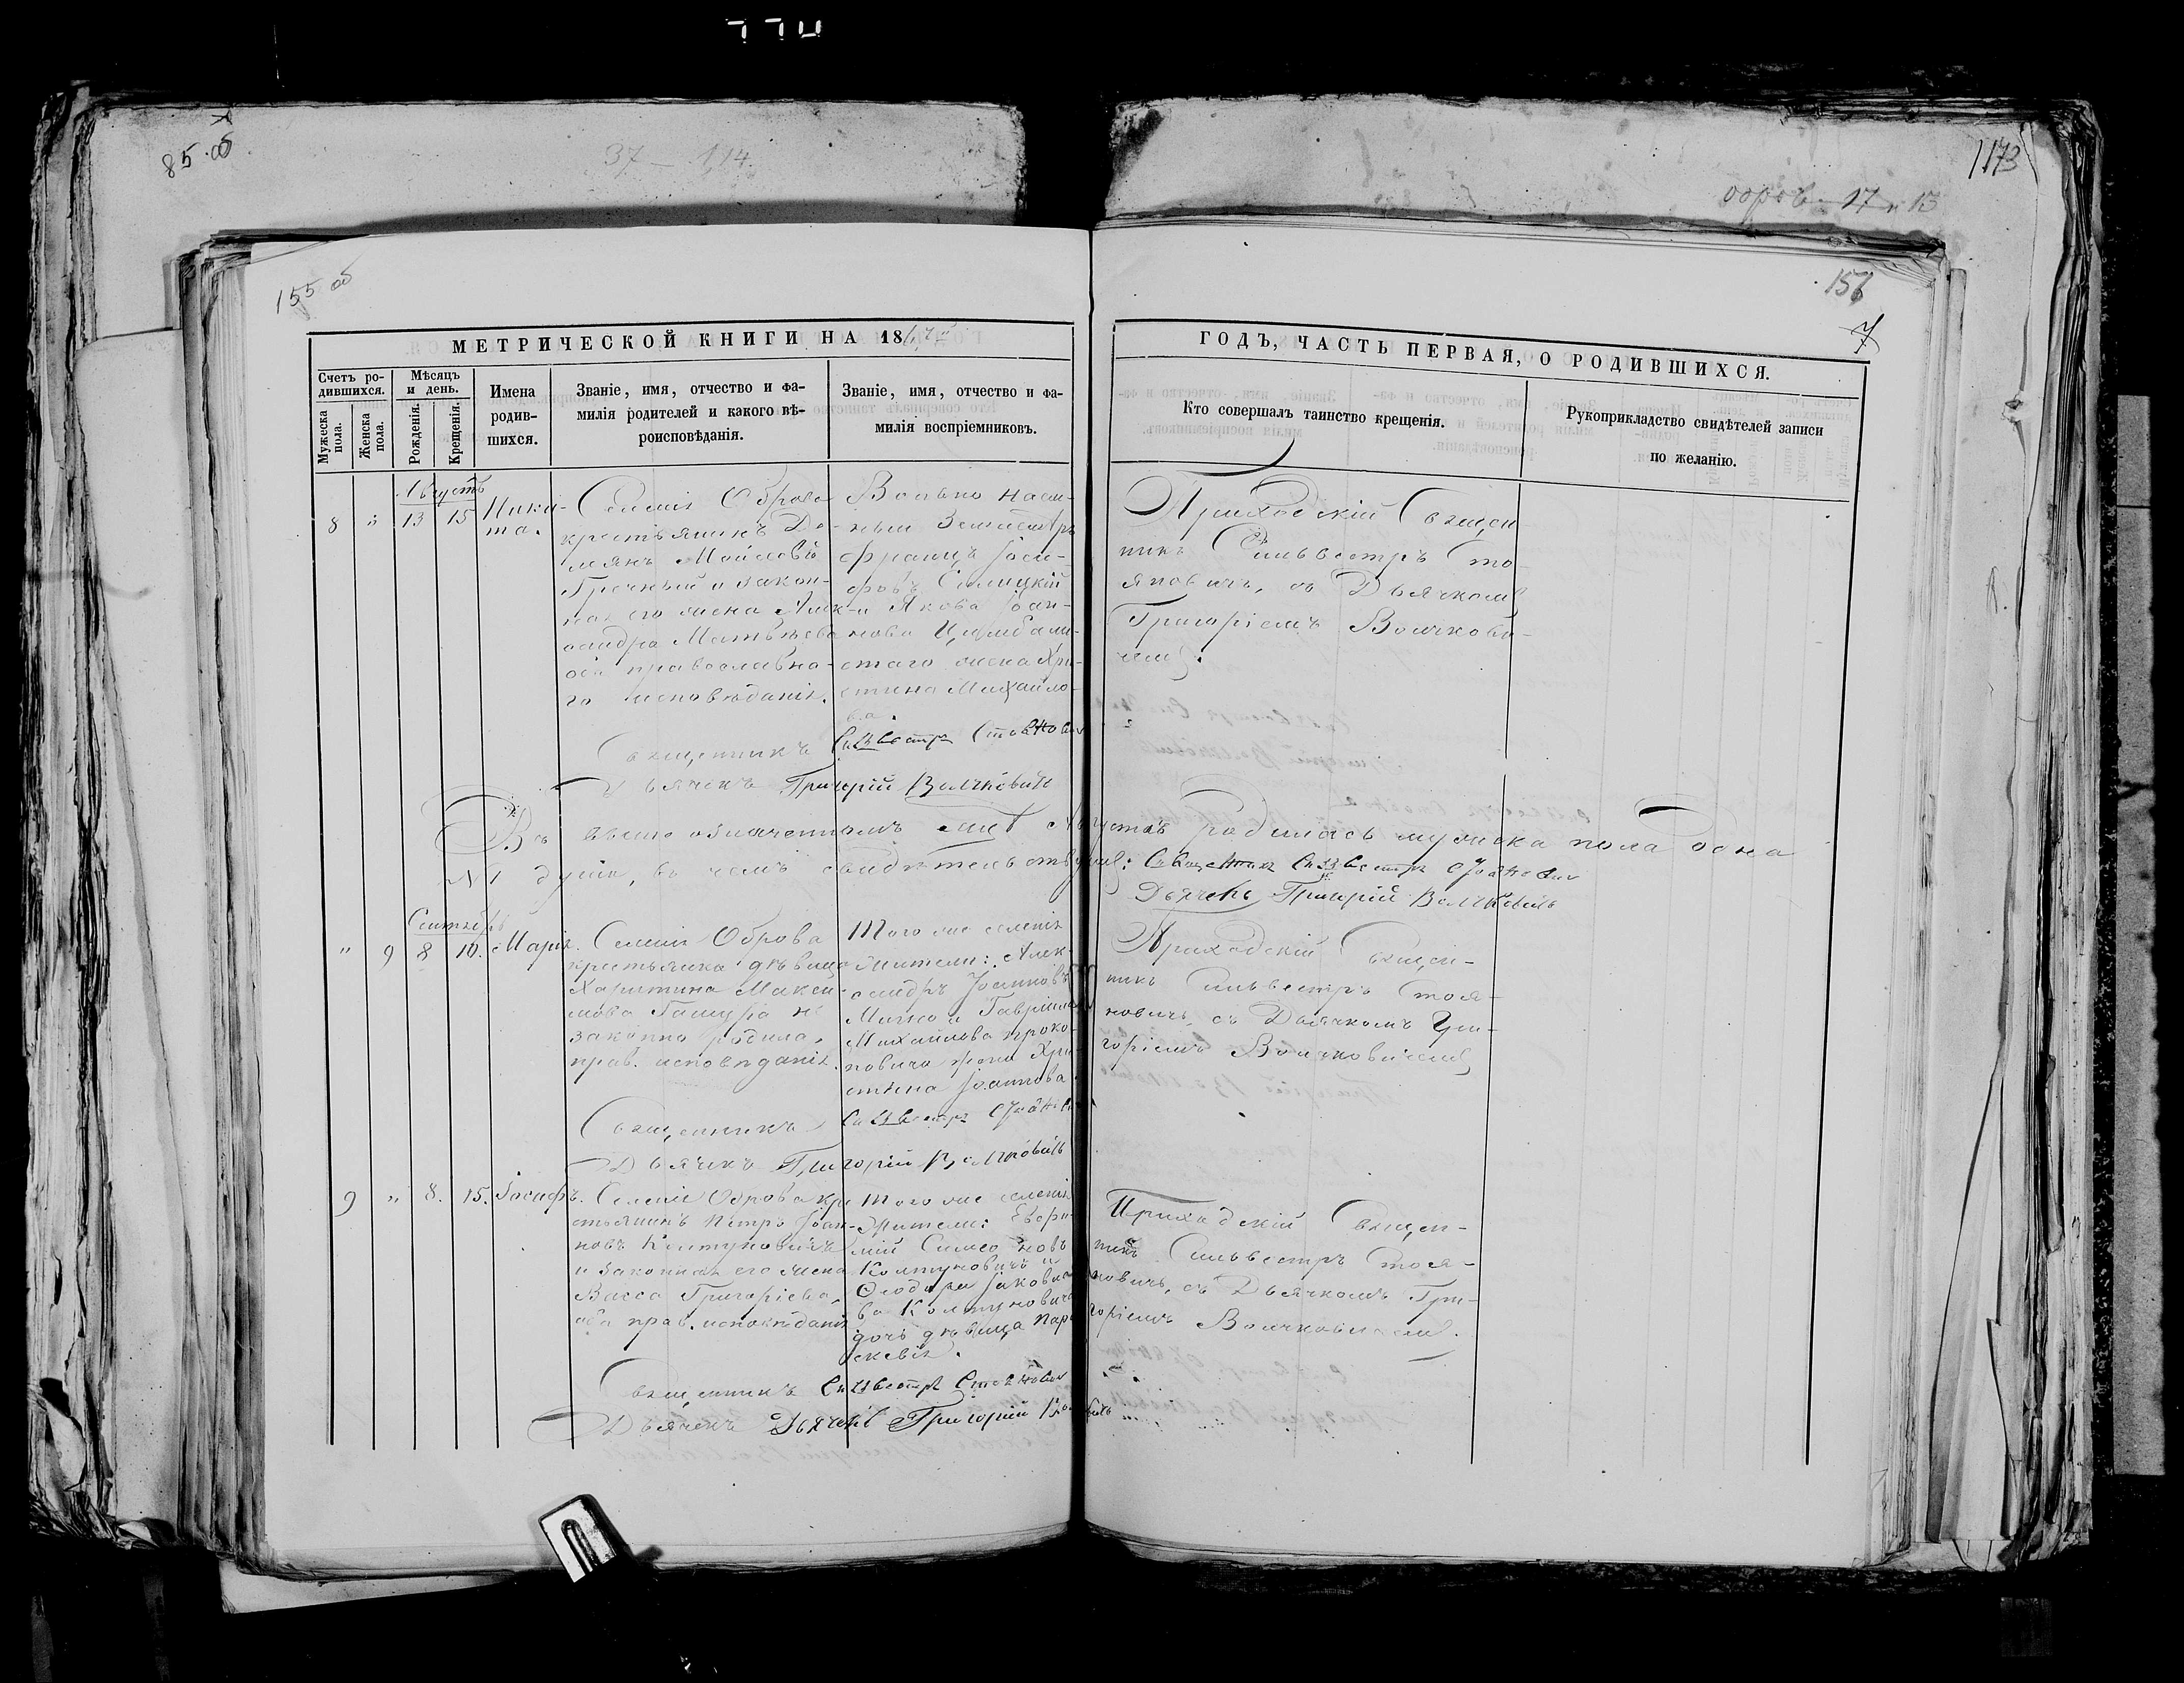 85 об
37 – 114
1173
155 об
156
7
МЕТРИЧЕСКОЙ КНИГИ НА 18
ГОДЪ, ЧАСТЬ ПЕРВАЯ, О РОДИВШИХСЯ.
Счетъ ро-
дившихся.
Мужеска
пола.
Женска
пола.
Мѣсяцъ
и день.
Рожденія.
Крещенія.
Имена
родив-
шихся.
Званіе, имя, отчество и фа-
милія родителей и какого вѣ-
роисповѣданія.
Званіе, имя, отчество и фа-
милія воспріемниковъ.
Кто совершалъ таинство крещенія.
Рукоприкладство свидѣтелей записи
по желанію.
Августъ
8 " 13 15
Ники-
та.
Селенія Оброва
крестьянинъ Да-
міянъ Мойсеевъ
и закон-
ная его жена Алек-
сандра Матѣѣева
оба православна-
го исповѣданія.
Вольно наем-
ный Землемѣръ
Францъ Іоси-
фовъ
и Якова Іоан-
нова
жена Хри-
стина Михайло-
ва.
Приходскій Священ-
никъ Сильвестръ Сто-
яновичъ, съ Дьячкомъ
Григоріемъ Волчкови-
чемъ.
Священникъ Сильвестръ Стояновичъ
Дьячекъ Григорій Волчковичъ
Въ выше означенномъ м. Августѣ родилась мужска пола одна
№ 1 душа, въ чемъ свидѣтельствуемъ: Священникъ Сильвестръ Стояновичъ
Дьячекъ Григорій Волчковичъ
Сентябрь
" 9 8 10. Марія.
Селенія Оброва
крестьянка дѣвица
Харитина Макси-
мова не
законно родила,
прав. исповѣданія.
Того же селенія
жители: Алек-
сандръ Іоанновъ
и Гавріила
Михайлова Проко-
повича жена Хри-
стина Іоаннова.
Приходскій Священ-
никъ Сильвестръ Стоя-
новичъ, съ Дьячкомъ Гри-
горіемъ Волчковичемъ
Священникъ Сильвестръ Стояновичъ
Дьячекъ Григорій Волчковичъ
9 " 8. 15. Іосифъ.
Селенія Оброва кре-
стьянинъ Петръ Іоан-
новъ Колтуновичъ
и законная его жена
Васса Григорієва,
оба прав. исповѣданія
Того же селенія
жители: Евфи-
мій Симеоновъ
Колтуновичъ и
Ѳеодора Іаковле-
ва Колтуновича
дочь дѣвица Пара-
скевія.
Приходскій Священ-
никъ Сильвестръ Стоя-
новичъ, съ Дьячкомъ Гри-
горіемъ Волчковичемъ.
Священникъ Сильвестръ Стояновичъ
Дьячекъ Дьячекъ Григорій Волчковичъ